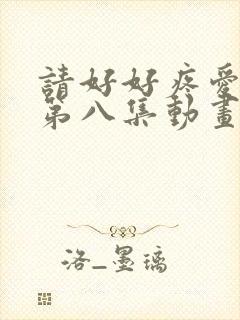 請好好疼愛
第八集動畫
洛_墨璃